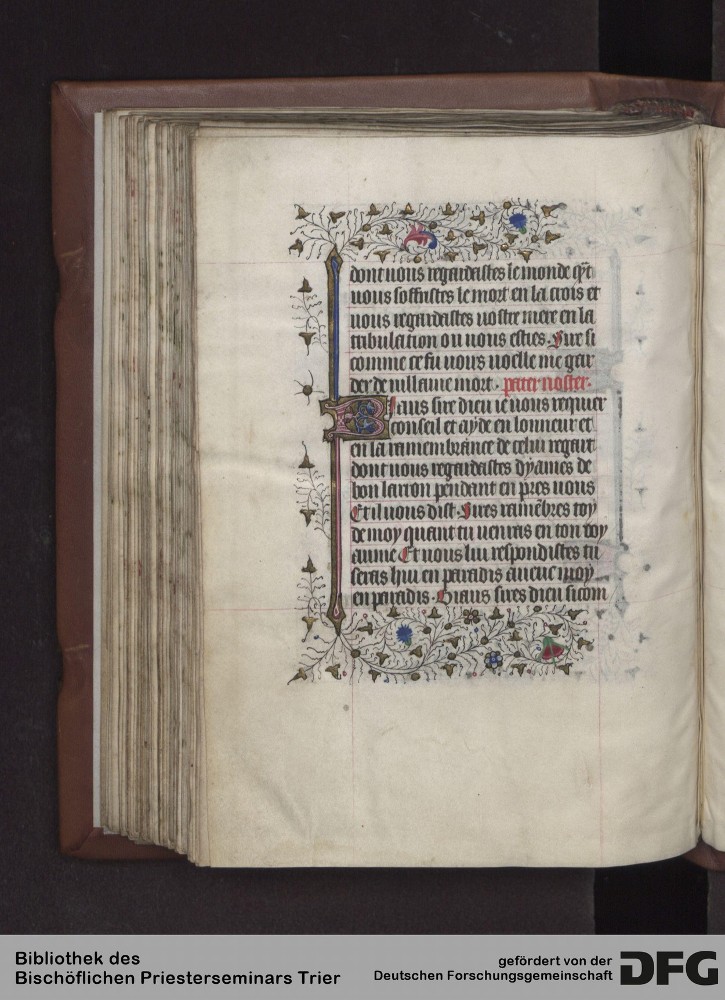 dont uous regardastes le monde qñt
uous soffristes le mort en la crois et
uous regardastes uostre mere en la
tribulation ou uous esties. Sire si
comme ce fu uours uoelle me gar
der de uillaine mort. pater noster.
Biaus sire dieu ie uous requier
conseil et ayde en lonneur et
en la ramembrance de celui regart
dont uous regardastes dyames de
bon larron pendant en pres uous
Et il uous dist. Sires ramēbres toy
de moy quant tu uenras en ton roy
aume Et uous lui respondistes tu
seras hui en paradis aueuc moy
en paradis. Biaus sires dieu si com
Bibliothek des
Bischöflichen Priesterseminars Trier
gefördert von der
Deutschen Forschungsgemeinschaft
DFG